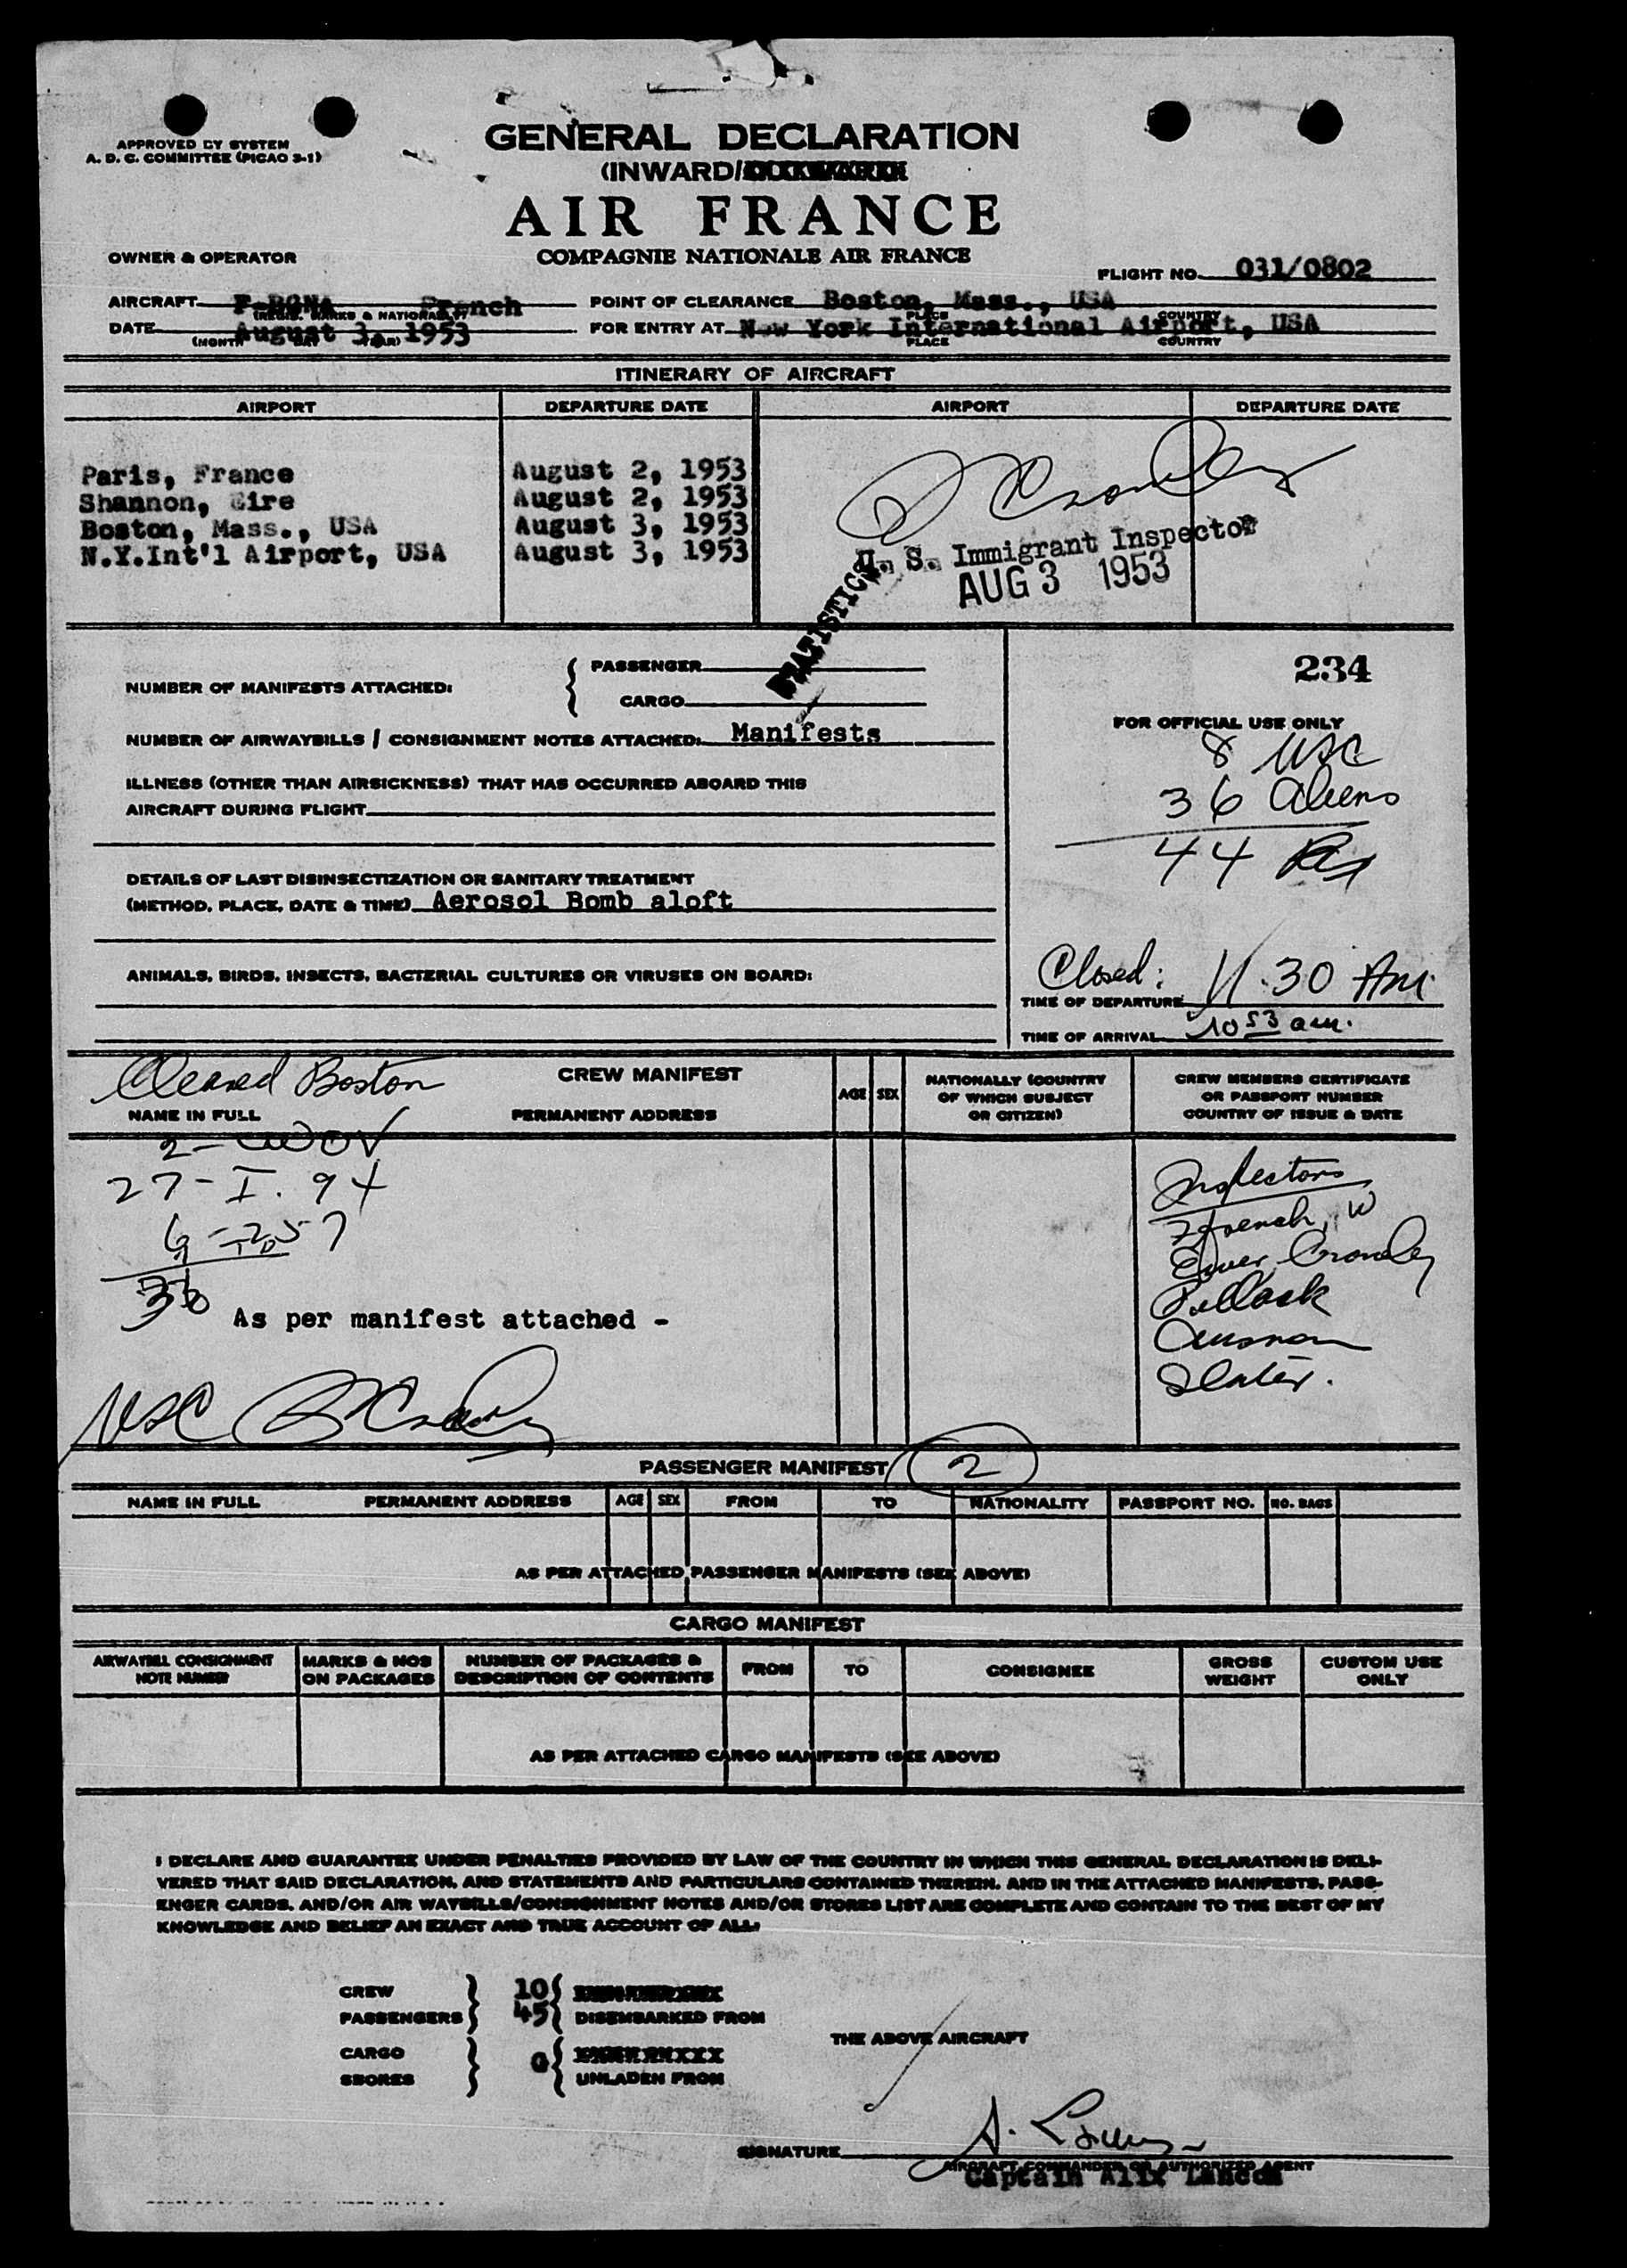 APPROVED BY SYSTEM
A. D. C. COMMITTEE (PICAO 3-1)
GENERAL DECLARATION
(INWARD/
AIR FRANCE
OWNER & OPERATOR
COMPAGNIE NATIONALE AIR FRANCE
FLIGHT NO. 031/0802
AIRCRAFT French POINT OF CLEARANCE Boston, Mass., USA
(REGIS. MARKS & NATIONALITY) PLACE COUNTRY
DATE August 3, 1953 FOR ENTRY AT New York International Airport, USA
(MONTH DAY YEAR) PLACE COUNTRY
ITINERARY OF AIRCRAFT
AIRPORT DEPARTURE DATE AIRPORT DEPARTURE DATE
Paris, France August 2, 1953
Shannon, Eire August 2, 1953
Boston, Mass., USA August 3, 1953
N.Y.Int'l Airport, USA August 3, 1953
U. S. Immigrant Inspector
AUG 3 1953
STATISTICS
NUMBER OF MANIFESTS ATTACHED:
PASSENGER
CARGO
234
NUMBER OF AIRWAYBILLS / CONSIGNMENT NOTES ATTACHED: Manifests
FOR OFFICIAL USE ONLY
8 USC
36 Aliens
44
ILLNESS (OTHER THAN AIRSICKNESS) THAT HAS OCCURRED ABOARD THIS
AIRCRAFT DURING FLIGHT
DETAILS OF LAST DISINSECTIZATION OR SANITARY TREATMENT
(METHOD, PLACE, DATE & TIME) Aerosol Bomb aloft
ANIMALS, BIRDS, INSECTS, BACTERIAL CULTURES OR VIRUSES ON BOARD:
Closed: 11.30 Am.
TIME OF DEPARTURE
TIME OF ARRIVAL 10 53 am.
Cleared Boston
CREW MANIFEST
NAME IN FULL PERMANENT ADDRESS AGE SEX
NATIONALLY (COUNTRY
OF WHICH SUBJECT
OR CITIZEN)
CREW MEMBERS CERTIFICATE
OR PASSPORT NUMBER
COUNTRY OF ISSUE & DATE
27-I. 94
As per manifest attached -
Inspectors
French, W
Crowley
Pollack
Slater.
USC
PASSENGER MANIFEST 2
NAME IN FULL PERMANENT ADDRESS AGE SEX FROM TO NATIONALITY PASSPORT NO. NO. BAGS
AS PER ATTACHED PASSENGER MANIFESTS (SEE ABOVE)
CARGO MANIFEST
AIRWAYBILL CONSIGNMENT
NOTE NUMBER
MARKS & NOS
ON PACKAGES
NUMBER OF PACKAGES &
DESCRIPTION OF CONTENTS
FROM TO CONSIGNEE
GROSS
WEIGHT
CUSTOM USE
ONLY
AS PER ATTACHED CARGO MANIFESTS (SEE ABOVE)
I DECLARE AND GUARANTEE UNDER PENALTIES PROVIDED BY LAW OF THE COUNTRY IN WHICH THIS GENERAL DECLARATION IS DELI-
VERED THAT SAID DECLARATION, AND STATEMENTS AND PARTICULARS CONTAINED THEREIN, AND IN THE ATTACHED MANIFESTS, PASS-
ENGER CARDS, AND/OR AIR WAYBILLS/CONSIGNMENT NOTES AND/OR STORES LIST ARE COMPLETE AND CONTAIN TO THE BEST OF MY
KNOWLEDGE AND BELIEF AN EXACT AND TRUE ACCOUNT OF ALL:
CREW 10
PASSENGERS 45 DISEMBARKED FROM
THE ABOVE AIRCRAFT
CARGO 0
STORES UNLADEN FROM
SIGNATURE
AIRCRAFT COMMANDER OR AUTHORIZED AGENT
Captain Alix